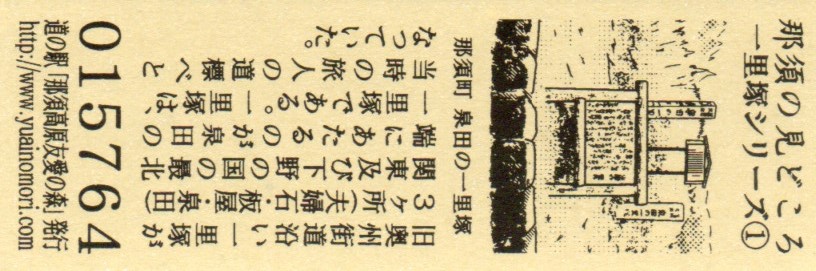 那須の見どころ
一里塚シリーズ①
那須町 泉田の一里塚
旧奥州街道沿い一里塚が
3ヶ所(夫婦石・板屋・泉田)
関東及び下野の国の最北
端にあたるのが泉田の
一里塚である。一里塚は、
当時の旅人の道標べと
なっていた。
015764
道の駅「那須高原友愛の森」発行
http://www.yuainomori.com